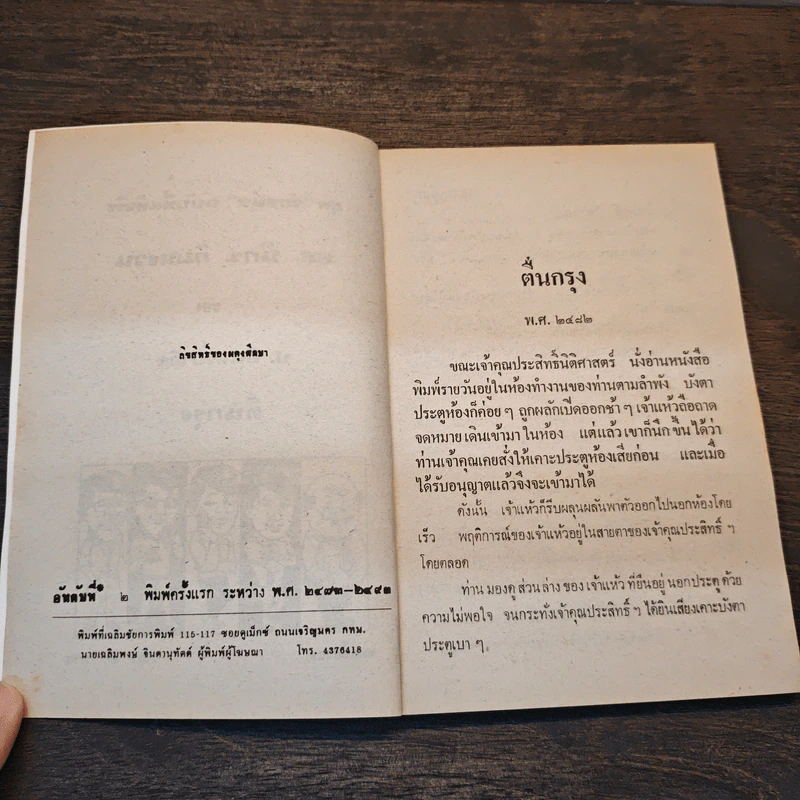 ลิขสิทธิ์ของผดุงศึกษา
อันดับที่ ๒ พิมพ์ครั้งแรก ระหว่าง พ.ศ. ๒๔๘๓–๒๔๙๓
พิมพ์ที่เฉลิมชัยการพิมพ์ 115-117 ซอยดูเม็กซ์ ถนนเจริญนคร กทม.
นายเฉลิมพงษ์ จินดานุทัตต์ ผู้พิมพ์ผู้โฆษณา โทร. 4376418
ตื่นกรุง
พ.ศ. ๒๔๘๒
ขณะเจ้าคุณประสิทธิ์นิติศาสตร์ นั่งอ่านหนังสือ
พิมพ์รายวันอยู่ในห้องทำงานของท่านตามลำพัง บังตา
ประตูห้องก็ค่อย ๆ ถูกผลักเปิดออกช้า ๆ เจ้าแห้วถือถาด
จดหมาย เดินเข้ามา ในห้อง แต่แล้ว เขาก็นึก ขึ้น ได้ว่า
ท่านเจ้าคุณเคยสั่งให้เคาะประตูห้องเสียก่อน และเมื่อ
ได้รับอนุญาตแล้วจึงจะเข้ามาได้
ดังนั้น เจ้าแห้วก็รีบผลุนผลันพาตัวออกไปนอกห้องโดย
เร็ว พฤติการณ์ของเจ้าแห้วอยู่ในสายตาของเจ้าคุณประสิทธิ์ ฯ
โดยตลอด
ท่าน มองดู ส่วน ล่าง ของ เจ้าแห้ว ที่ยืนอยู่ นอกประตู ด้วย
ความไม่พอใจ จนกระทั่งเจ้าคุณประสิทธิ์ ฯ ได้ยินเสียงเคาะบังตา
ประตูเบา ๆ